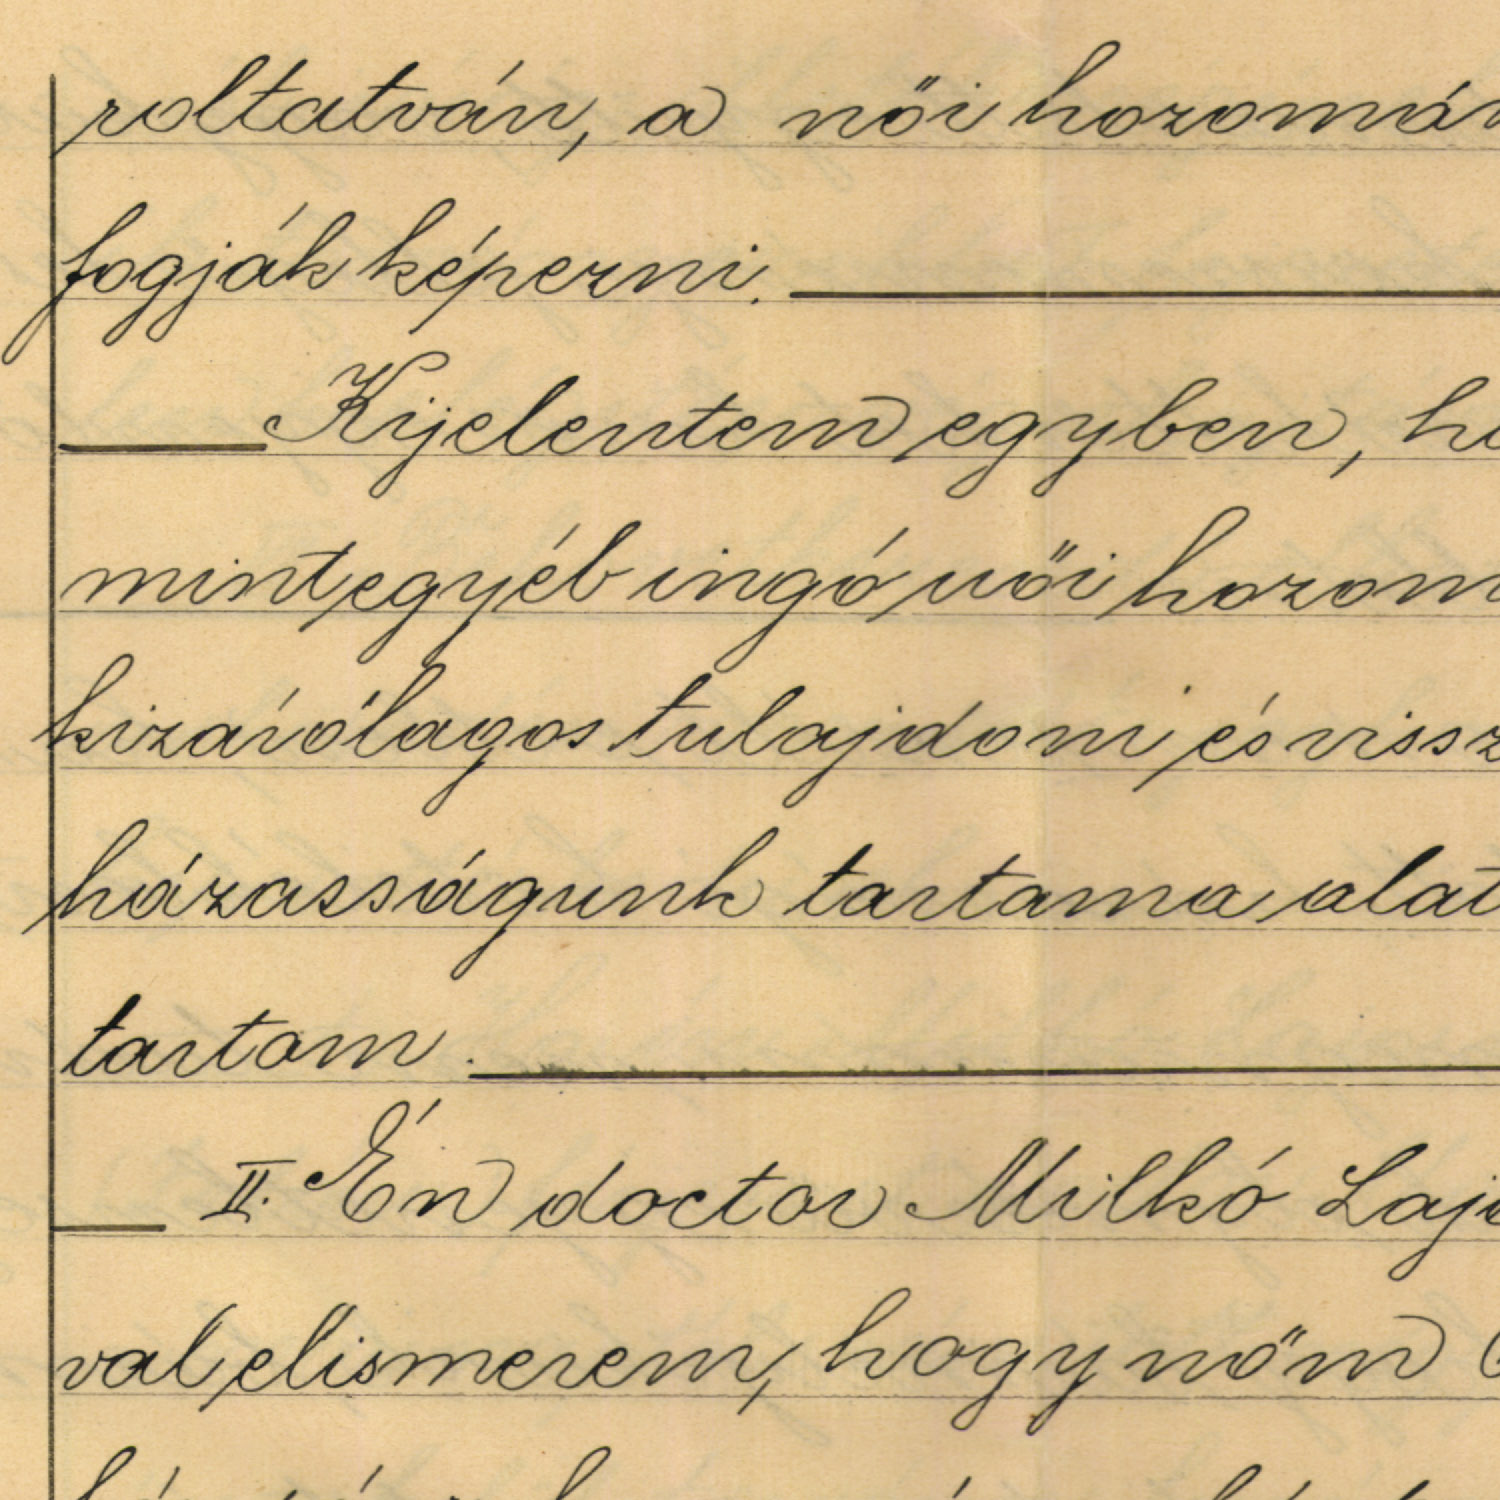 roltatván, a női hozomán
fogják képezni.
Kijelentem egyben, ho
mint egyéb ingó női hozom
kizárólagos tulajdoni és vissz
házasságunk tartama alat
tartom.
II. Én doctor Milkó Lajo
val elismerem, hogy nőm